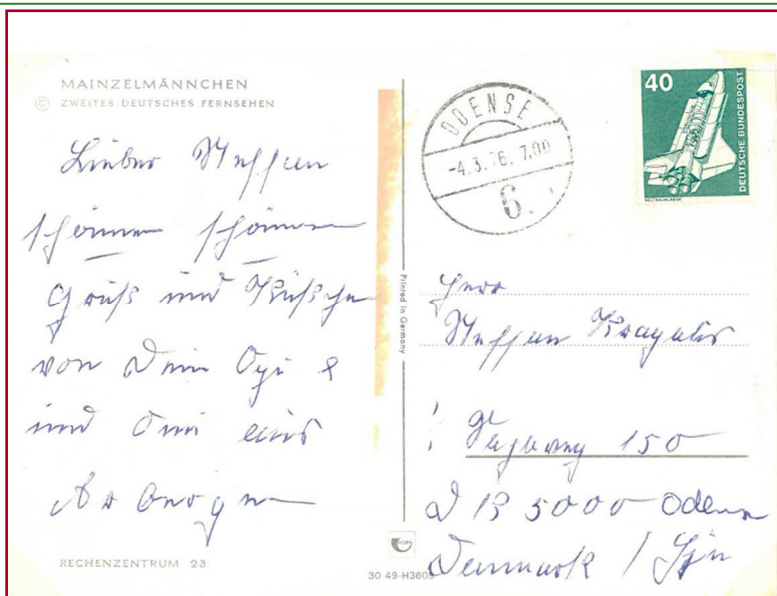 MAINZELMÄNNCHEN
© ZWEITES DEUTSCHES FERNSEHEN
Lieber Steffen
schönen schönen
Gruß und Küßchen
von Dein Opi &
und Omi aus
Arbergen
RECHENZENTRUM 23
Printed in Germany
30 49-H3609
ODENSE
-4.3.76. 7.00
6.
40
DEUTSCHE BUNDESPOST
Herr
Steffen
150
5000 Odense
Denmark /